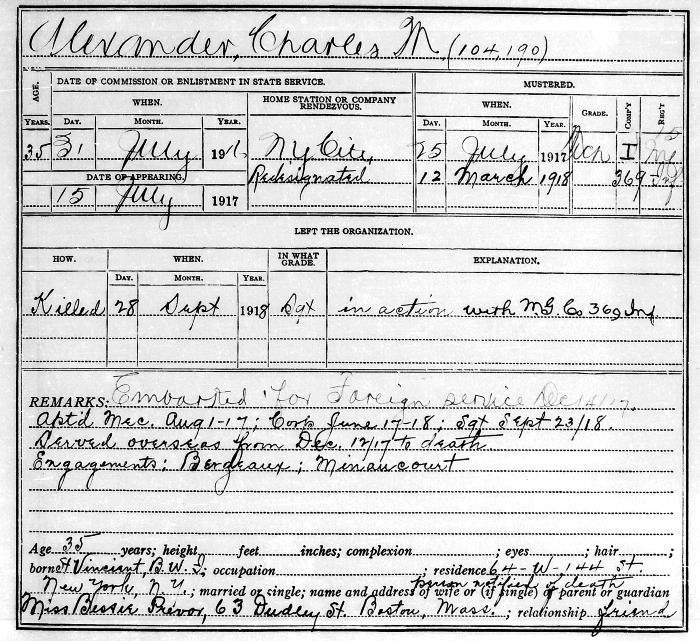 Alexander, Charles M. (104,190)
AGE. DATE OF COMMISSION OR ENLISTMENT IN STATE SERVICE. MUSTERED.
WHEN. HOME STATION OR COMPANY RENDEZVOUS. WHEN. GRADE. COMP'Y REG'T
YEARS. DAY. MONTH. YEAR. DAY. MONTH. YEAR.
15
35 31 July 1916 N.Y. City, 25 July 1917 I NY
DATE OF APPEARING. Redesignated 12 March 1918 369 Inf
15 July 1917
LEFT THE ORGANIZATION.
HOW. WHEN. IN WHAT GRADE. EXPLANATION.
DAY. MONTH. YEAR.
Killed 28 Sept 1918 Sgt in action with M.G. Co 369 Inf
REMARKS: Embarked for Foreign service De
Aptd Mec. Aug 1-17; Corp June 17-18; Sgt Sept 23/18.
Served overseas from Dec. 12/17 to death
Engagements: Bordeaux; Minaucourt
Age 35 years; height feet inches; complexion ; eyes ; hair ;
born St Vincient, B.W.I.; occupation ; residence 64-W-144 St.
person notified of death
New York, N.Y.; married or single; name and address of wife or (if single) of parent or guardian
Miss Bessie Prevor, 63 Dudley St. Boston, Mass. ; relationship friend